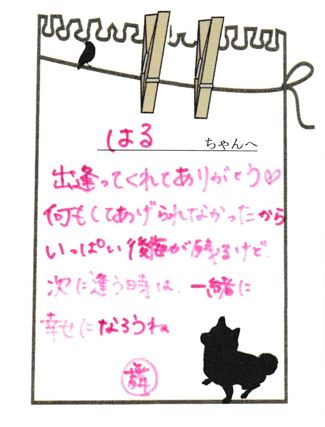 はる ちゃんへ
出逢ってくれてありがとう♡
何もしてあげられてなかったから
いっぱい後悔が残るけど、
次に逢う時は、一緒に
幸せになろうね
舞